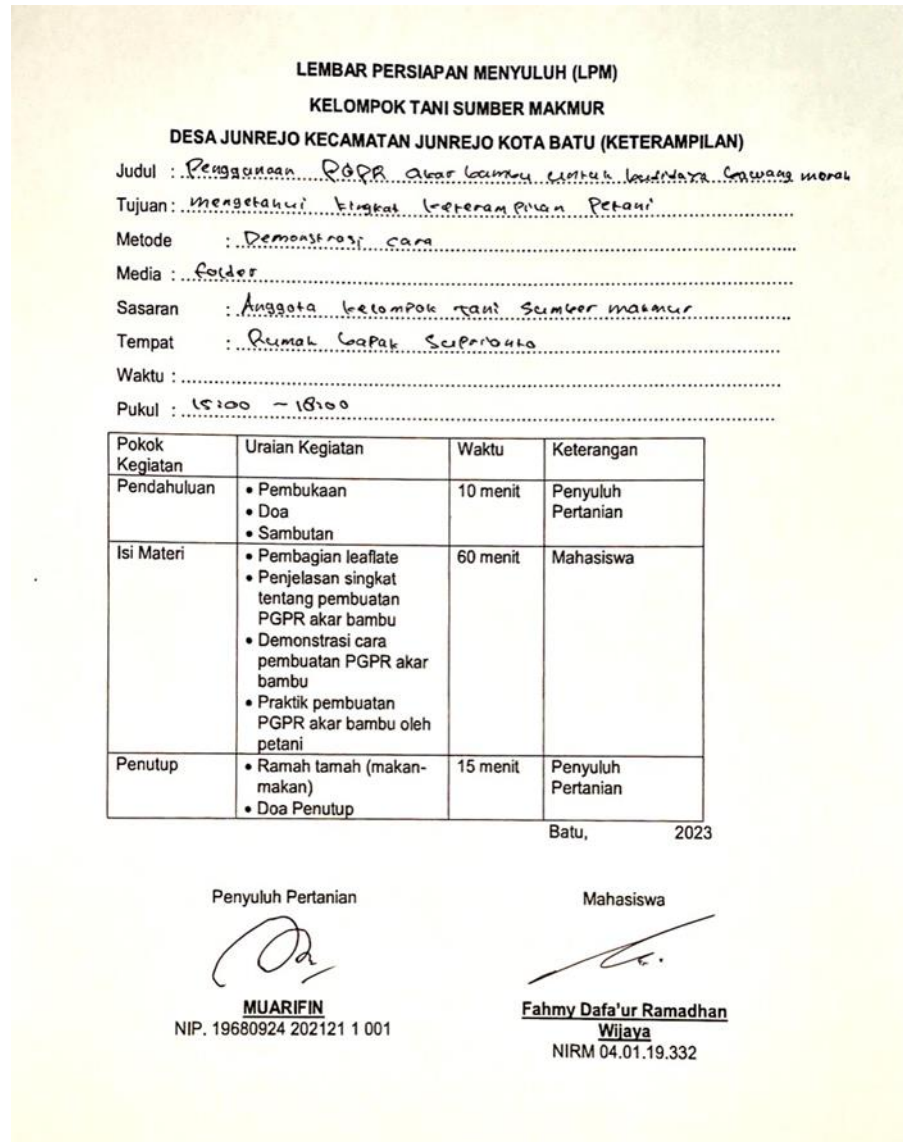 LEMBAR PERSIAPAN MENYULUH (LPM)
KELOMPOK TANI SUMBER MAKMUR
DESA JUNREJO KECAMATAN JUNREJO KOTA BATU (KETERAMPILAN)
Judul : Penggunaan PGPR akar bambu untuk budidaya bawang merah
Tujuan : mengetahui tingkat keterampilan Petani
Metode : Demonstrasi cara
Media : folder
Sasaran : Anggota kelompok tani Sumber makmur
Tempat : Rumah bapak
Waktu :
Pukul : 15:00 - 18:00
Pokok Kegiatan Uraian Kegiatan Waktu Keterangan
Pendahuluan • Pembukaan 10 menit Penyuluh
• Doa Pertanian
• Sambutan
Isi Materi • Pembagian leaflate 60 menit Mahasiswa
• Penjelasan singkat
tentang pembuatan
PGPR akar bambu
• Demonstrasi cara
pembuatan PGPR akar
bambu
• Praktik pembuatan
PGPR akar bambu oleh
petani
Penutup • Ramah tamah (makan- 15 menit Penyuluh
makan) Pertanian
• Doa Penutup
Batu, 2023
Penyuluh Pertanian Mahasiswa
MUARIFIN Fahmy Dafa'ur Ramadhan
NIP. 19680924 202121 1 001 Wijaya
NIRM 04.01.19.332